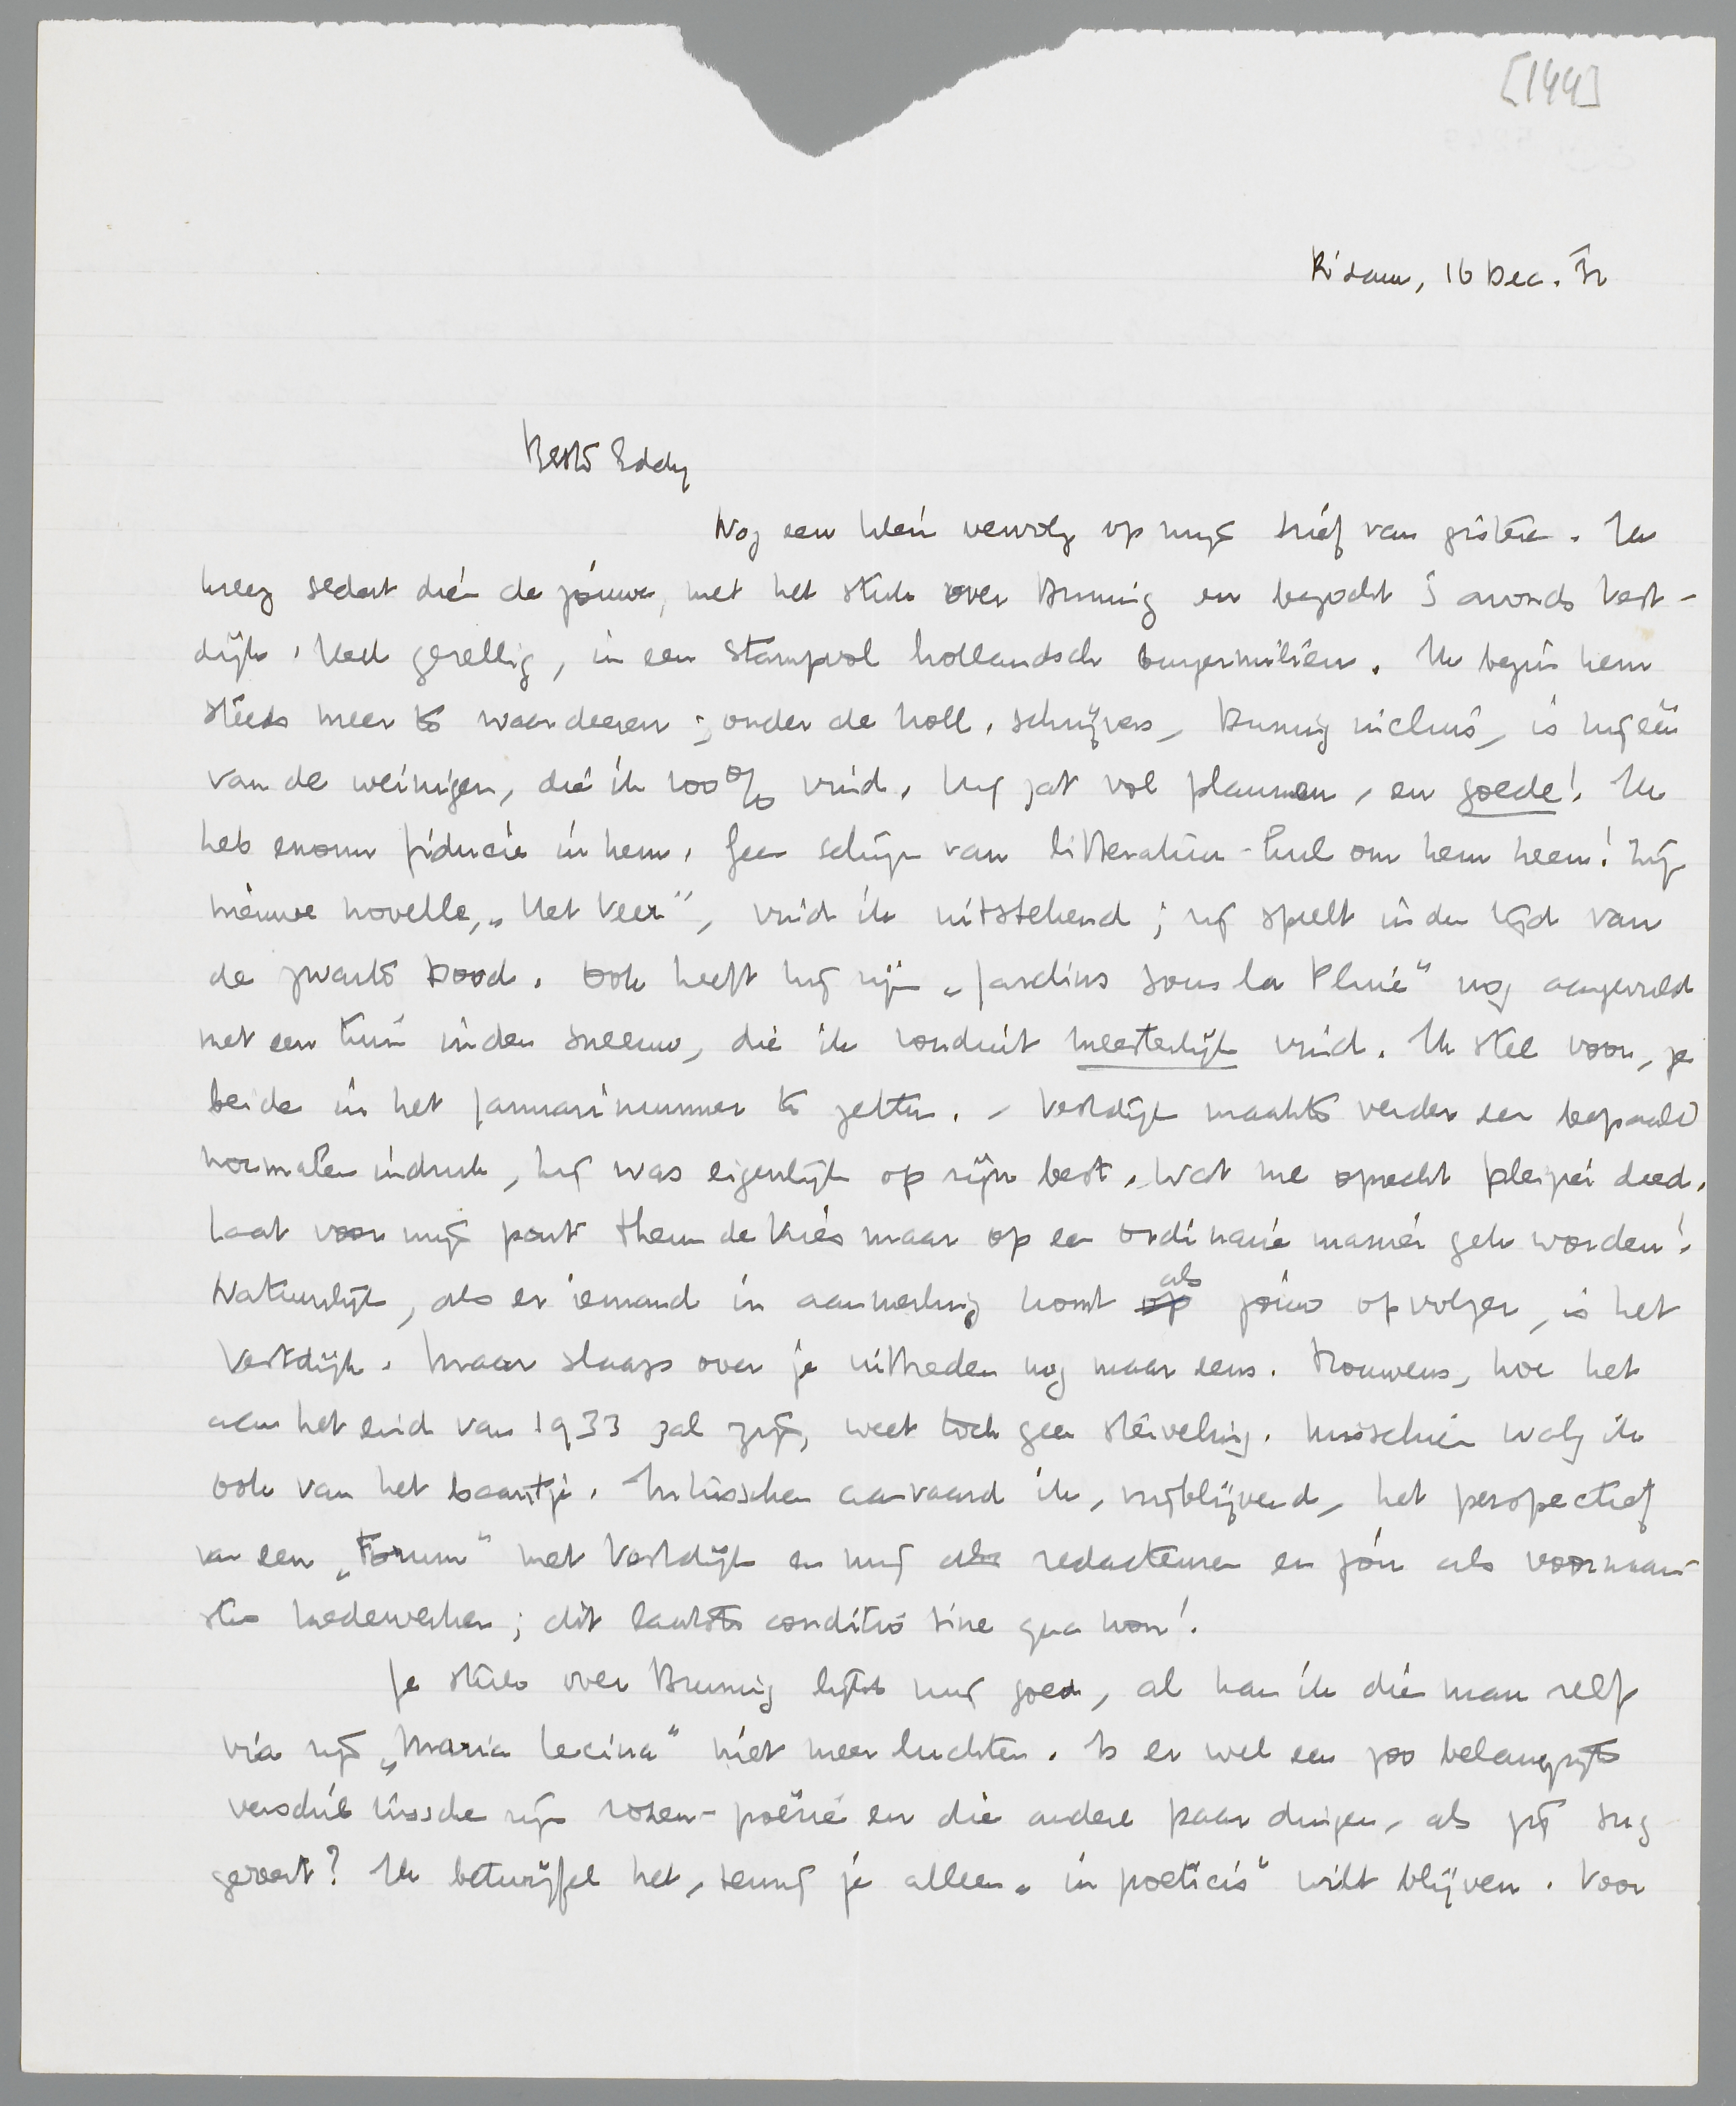 [144]
R'dam, 16 Dec. '32
Beste Eddy
Nog een klein vervolg op mijn brief van gisteren. Ik
kreeg sedert dien de jouwe, met het stuk over Bruning en bezocht 's avonds Vest-
dijk. Heel gezellig, in een stampvol hollandsch burgermilieu. Ik begin hem
steeds meer te waardeeren; onder de holl. schrijvers, Bruning incluis, is hij één
van de weinigen, die ik 100% vind. Hij zat vol plannen, en goede! Ik
heb enorm fiducie in hem. Geen schijn van litteratuur-lul om hem heen! Zijn
nieuwe novelle, „Het Veer", vind ik uitstekend; zij speelt in den tijd van
de zwarte Dood. Ook heeft hij zijn „Jardins sous la Pluie" nog aangevuld
met een tuin in den sneeuw, die ik ronduit meesterlijk vind. Ik stel voor, ze
beide in het Januarinummer te zetten. - Vestdijk maakte verder een bepaald
normalen indruk, hij was eigenlijk op zijn best. Wat me oprecht plezier deed.
Laat voor mijn part Theun de Vries maar op een ordinaire manier gek worden!
Natuurlijk, als er iemand in aanmerking komt op als jouw opvolger, is het
Vestdijk. Maar slaap over je uittreden nog maar eens. Trouwens, hoe het
aan het eind van 1933 zal zijn, weet toch geen sterveling. Misschien walg ik
ook van het baantje. Intusschen aanvaard ik, vrijblijvend, het perspectief
van een „Forum" met Vestdijk en mij als redacteuren en jou als voornaam-
ste medewerker; dit laatste conditio sine qua non!
Je stuk over Bruning lijkt mij goed, al kan ik die man zelf
via zijn „Maria Lecina" niet meer luchten. Is er wel een zoo belangrijk
verschil tusschen zijn rozen-poëzie en die andere paar dingen, als jij sug
gereert? Ik betwijfel het, tenzij je alleen „in poeticis" wilt blijven. Voor